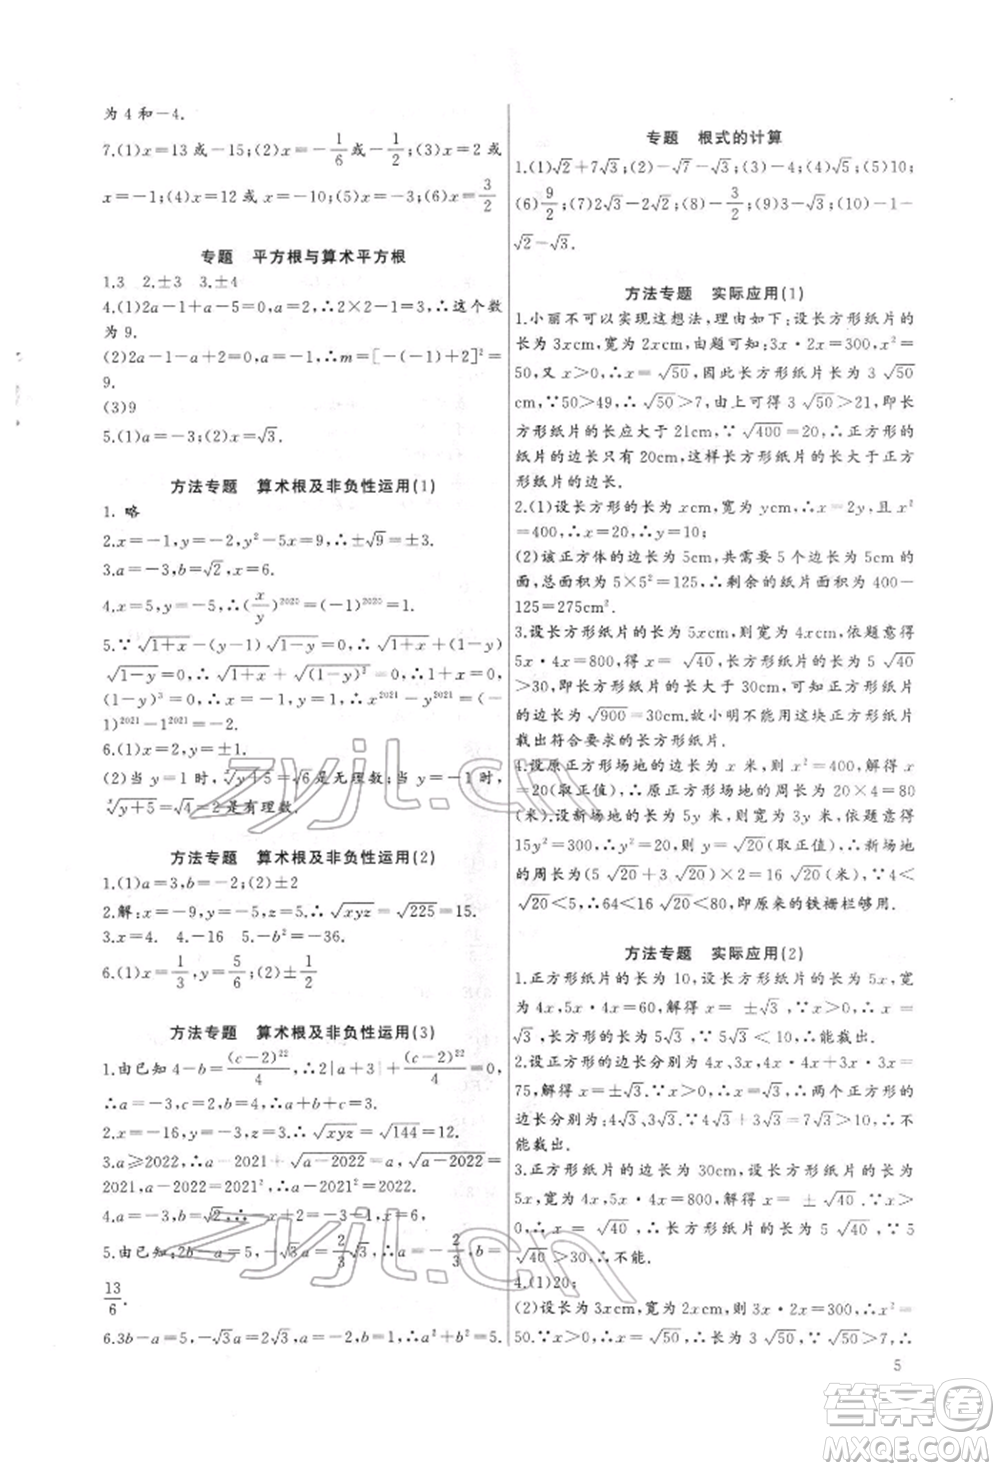 为 4 和 -4.
7.(1)x=13 或 -15;(2)x=-1/6 或 -1/2;(3)x=2 或
x=-1;(4)x=12 或 x=-10;(5)x=-3;(6)x=3/2
专题 平方根与算术平方根
1.3 2.±3 3.±4
4.(1)2a-1+a-5=0,a=2,∴2×2-1=3,∴这个数
为 9.
(2)2a-1-a+5=0,a=-4,∴
9.
(3)9
5.(1)a=-3;(2)x=√3.
方法专题 算术根及非负性运用(1)
1. 略
2.x=-1,y=-2,y²-5x=9,∴±√9=±3.
3.a=-3,b=√2,x=6.
4.x=5,y=-5,∴(x/y)²⁰²⁵=(-1)²⁰²⁵=1.
5.∵√(1+x)-(y-1)√(1-y)=0,∴√(1+x)+(1-y)
√(1-y)=0,∴√(1+x)+√((1-y)³)=0,∴1+x=0,
(1-y)³=0,∴x=-1,y=1,∴x²⁰²¹-y²⁰²¹=(-
1)²⁰²¹-1²⁰²¹=-2.
6.(1)x=2,y=±1.
(2)当 y=1 时,√(y+5)=√6是无理数;当 y=-1时,
√(y+5)=√4=2是有理数.
方法专题 算术根及非负性运用(2)
1.(1)a=3,b=-2;(2)±2
2.解:x=-9,y=-5,z=5.∴√(xyz)=√225=15.
3.x=4. 4.-16 5.-b²=-36.
6.(1)x=1/3,y=5/6;(2)±1/2
方法专题 算术根及非负性运用(3)
1.由已知 4-b=(c-2)²²/4,∴2|a+3|+(c-2)²²/4=0,
∴a=-3,b=4,c=2,∴a+b+c=3.
2.x=-16,y=-3,z=3.∴√(xyz)=√144=12.
3.a≥2022,∴a-2021+√(a-2022)=a,√(a-2022)=
2021,a-2022=2021²∴a-2021²=2022.
4.a=-3,b=√2,∴-x+2=-3-1,x=6,
5.由已知:2b-a=5,-√3a=2/3√3,∴a=-2/3,b=
13/6.
6.3b-a=5,-√3a=2√3,∴a=-2,b=1,∴a²+b²=5.
专题 根式的计算
1.(1)√2+7√3;(2)-√7-√3;(3)-4;(4)√5;(5)10;
(6)9/2;(7)2√3-2√2;(8)-3/2;(9)3-√3;(10)-1-
√2-√3.
方法专题 实际应用(1)
1.小丽不可以实现这想法,理由如下:设长方形纸片的
长为 3xcm,宽为 2xcm,由题可知:3x·2x=300,x²=
50,又 x>0,∴x=√50,因此长方形纸片长为 3√50
cm,∵50>49,∴√50>7,由上可得 3√50>21,即长
方形纸片的长应大于 21cm,∵√400=20,∴正方形的
纸片的边长只有 20cm,这样长方形纸片的长大于正方
形纸片的边长.
2.(1)设长方形的长为 xcm,宽为 ycm,∴x=2y,且 x²
=400,∴x=20,∴y=10;
(2)该正方体的边长为 5cm,共需要 5 个边长为 5cm 的
正方形 5×5²=125,∴剩余的纸片面积为 400-
125=275cm².
3.设长方形纸片的长为 5xcm,则宽为 4xcm,依题意得
5x·4x=800,∴x=√40,长方形纸片的长为 5√40
>30,即长方形纸片的长大于 30cm,可知正方形纸片
的边长为√900=30cm.故小明不能用这块正方形纸片
截出符合要求的长方形纸片.
4.设原正方形场地的边长为 x 米,∴x²=400,解得 x
=20(取正值),∴原正方形场地的周长为 20×4=80
(米).设新场地的长为 5y 米,则宽为 3y 米,依题意得
15y²=300,∴y²=20,解得 y=√20(取正值),∴新场地
的周长为(5√20+3√20)×2=16√20(米).∵4<
√20<5,∴64<16√20<80,即原来的铁栅栏够用.
方法专题 实际应用(2)
1.正方形纸片的长为 10,设长方形纸片的长为 5x,宽
为 4x,5x·4x=60,解得 x=±√3,∵x>0,∴x=
√3,长方形纸片的长为 5√3,∵5√3<10,∴能裁出.
2.设正方形的边长分别为 4x、3x,4x·4x+3x·3x=
75,解得 x=±√3,∵x>0,∴x=√3,∴两个正方形的
边长分别为:4√3,3√3.∵4√3+3√3=7√3>10,∴不
能裁出.
3.正方形纸片的边长为 30cm,设长方形纸片的长为
5x,宽为 4x,5x·4x=800,解得 x=±√40.∵x>
0,∴x=√40,∴长方形纸片的长为 5√40,∵5
√40>30,∴不能.
4.(1)20;
(2)设长为 3xcm,宽为 2xcm,则 3x·2x=300,∴x²=
50.∵x>0,∴x=√50,∴长为 3√50,∵√50>7,∴
5
zyjl.cn
zyjl.cn
答案圈
MXQE.COM